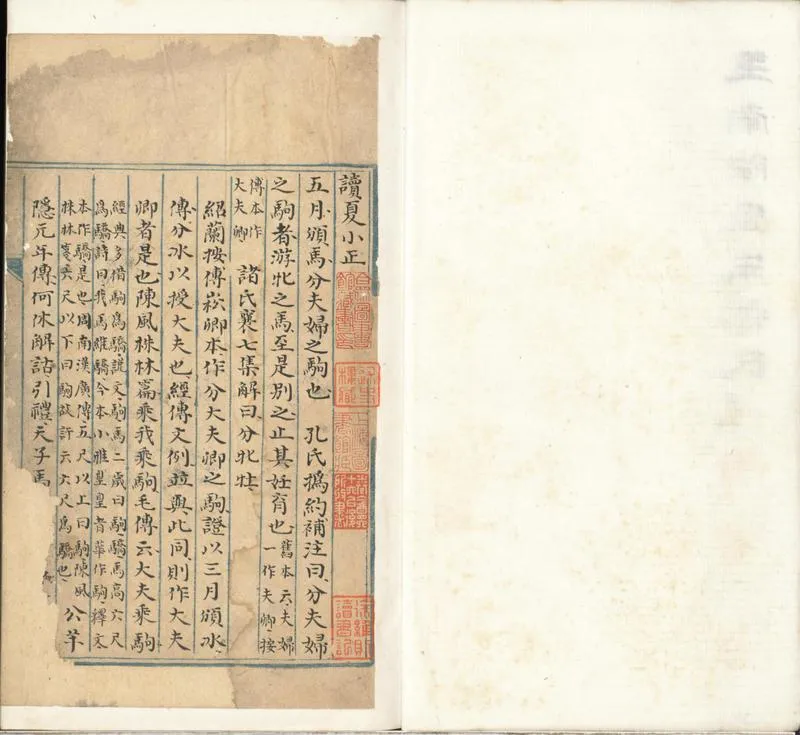 讀夏小正
五月頒馬分夫婦之駒也　孔氏撝約補注曰分夫婦
之駒者游牝之馬至是別之止其妊育也
舊本云夫婦
一作夫卿按
傳本作
大夫卿
諸氏襄七集解曰分牝牡
紹蘭按傅崧卿本作分大夫卿之駒證以三月頒冰
傳分冰以授大夫也經傳文例竝與此同則作大夫
卿者是也陳風株林篇乘我乘駒毛傳云大夫乘駒
經典多借駒爲驕說文駒馬二歲曰駒驕馬高六尺
爲驕詩曰我馬維驕今本小雅皇皇者華作駒釋文
本作驕是也周南漢廣傳五尺以上曰駒陳風
株林箋六尺以下曰駒故許云六尺爲驕也
公羊
隱元年傳何休解詁引禮天子馬